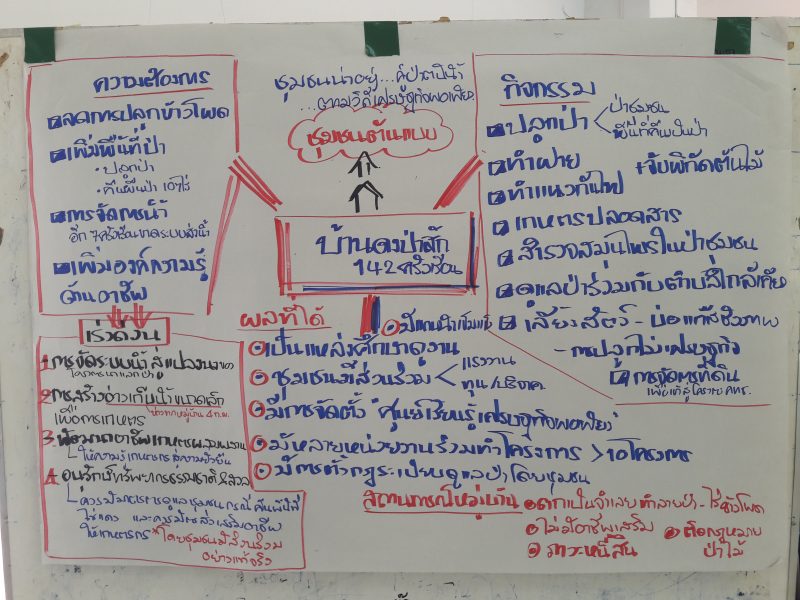 ความต้องการ
ลดการปลูกข้าวโพด
เพิ่มพื้นที่ป่า
• ปลูกป่า
• คืนผืนป่า 10ไร่
การจัดการน้ำ
อีก 7 ครัวเรือนขาดระบบส่งน้ำ
เพิ่มองค์ความรู้
ด้านอาชีพ
เร่งด่วน
1. การจัดระบบน้ำสู่แปลงนา
2. การสร้างอ่างเก็บน้ำขนาดเล็ก
เพื่อการเกษตร
3. พัฒนาอาชีพเกษตรผสมผสาน
ให้ความรู้เกษตรกร
4. อนุรักษ์ทรัพยากรธรรมชาติ & สวล
ไข่แดง และควรมีการส่งเสริมอาชีพ
ให้เกษตรกร *โดยชุมชนมีส่วนร่วม
อย่างแท้จริง
ชุมชนน่าอยู่...คู่ป่าต้นน้ำ
...ตามวิถีเศรษฐกิจพอเพียง
ชุมชนต้นแบบ
บ้านดงป่าสัก
142 ครัวเรือน
ผลที่ได้
มีแกนนำเข้มแข็ง
เป็นแหล่งศึกษาดูงาน
ชุมชนมีส่วนร่วม < แรงงาน
ทุน/บริจาค
มีการจัดตั้ง "ศูนย์เรียนรู้เศรษฐกิจพอเพียง"
มีหลายหน่วยงานร่วมทำโครงการ > 10 โครงการ
มีการตั้งกฎระเบียบดูแลป่าโดยชุมชน
กิจกรรม
ปลูกป่า < ป่าชุมชน
พื้นที่คืนผืนป่า
ทำฝาย + จับพิกัดต้นไม้
ทำแนวกันไฟ
เกษตรปลอดสาร
สำรวจสมุนไพรในป่าชุมชน
ดูแลป่าร่วมกับตำบลใกล้เคียง
เลี้ยงสัตว์ - บ่อแก๊สชีวภาพ
- การปลูกไม้เศรษฐกิจ
การจัดการที่ดิน
สถานการณ์หมู่บ้าน
ตกเป็นจำเลยทำลายป่า - ไร่ข้าวโพด
ไม่มีอาชีพเสริม
ภาวะหนี้สิน
ติดกฎหมาย
ป่าไม้